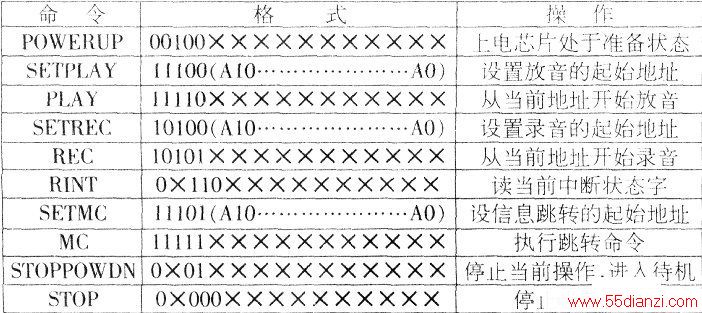 命 令 格 式 操 作
POWERUP 00100××××××××××× 上电芯片处于准备状态
SETPLAY 11100(A10…………………A0) 设置放音的起始地址
PLAY 11110××××××××××× 从当前地址开始放音
SETREC 10100(A10…………………A0) 设置录音的起始地址
REC 10101××××××××××× 从当前地址开始录音
RINT 0×110××××××××××× 读当前中断状态字
SETMC 11101(A10…………………A0) 设信息跳转的起始地址
MC 11111××××××××××× 执行跳转命令
STOPPOWDN 0×01×××××××××××× 停止当前操作,进入待机
STOP 0×000××××××××××× 停
www.55dianzi.com